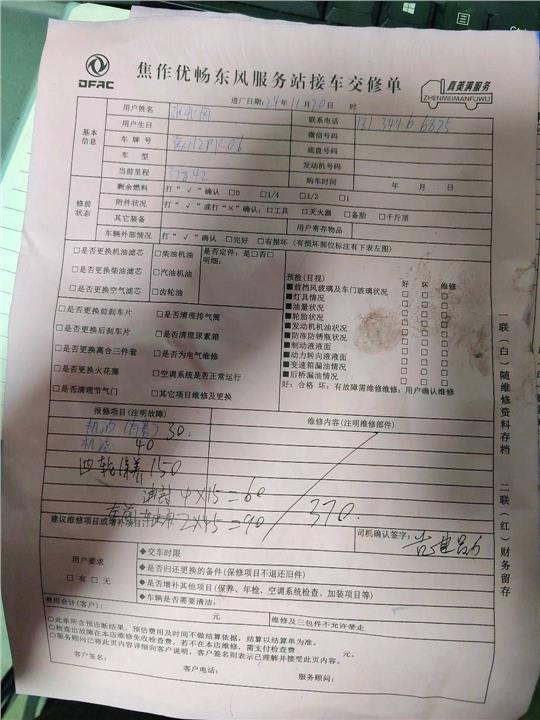 DFAC
焦作优畅东风服务站接车交修单
真美满服务
ZHENMEIMANFUWU
进厂日期：24年11月20日 时
基本信息
用户姓名
联系电话
用户生日
微信号码
车牌号
底盘号码
车型
发动机号码
当前里程 37842
购车时间 年 月 日
修前状态
剩余燃料 打“√”确认 □0 □1/4 □1/2 □1
附件状况 打“√”或打“×”确认：□工具 □灭火器 □备胎 □千斤顶
其它装备
用户寄存物品
车辆外部情况 打“√”确认 □完好 □有损坏（有损坏部位标注有下表左图）
□是否更换机油滤芯 □柴油机油
□是否更换柴油滤芯 □汽油机油
□是否更换空气滤芯 □齿轮油
是否定件：□是□否□
明细：
□是否更换前刹车片 □是否清理排气筒
□是否更换后刹车片 □是否清理尿素箱
□是否更换离合三件套 □是否为电气维修
□是否更换火花塞 □空调系统是否正常运行
□是否清理节气门 □其它项目维修及更换
预检(目视) 好 坏 维修
■前挡风玻璃及车门玻璃状况 □ □ □
■灯具情况 □ □ □
■油量状况 □ □ □
■轮胎状况 □ □ □
■发动机机油状况 □ □ □
■防冻防锈瓶状况 □ □ □
■制动液液面 □ □ □
■动力转向液液面 □ □ □
■变速箱漏油情况 □ □ □
■后桥漏油情况 □ □ □
好：合格 坏：有故障需维修维修：用户确认维修
报修项目(注明故障)
维修内容(注明维修部件)
30
40
四轮保养 150
油封 4×15=60
2×45=90
370.
建议维修项目或增补项目
司机确认签字：
用户要求
□有 □无
◆交车时限
◆是否归还更换的备件(保修项目不退还旧件)
◆是否增补其他项目(保养、年检、空调系统检查、加装项目等)
◆车辆是否需要清洁：
费用合计(客户)： 元 维修及三包件不允许带走
○此单所含预诊断结果，预估费用及时间不做结算依据，结算以结算单为准。
○检查出故障在本店维修免收检查费，若不在本店维修，需支付检查费 元。
○服务顾问已将此页内容详细向客户说明，客户签名则表示已理解并接受此页内容。
客户签名： 客户电话： 服务顾问：
一联（白）随维修资料存档
二联（红）财务留存